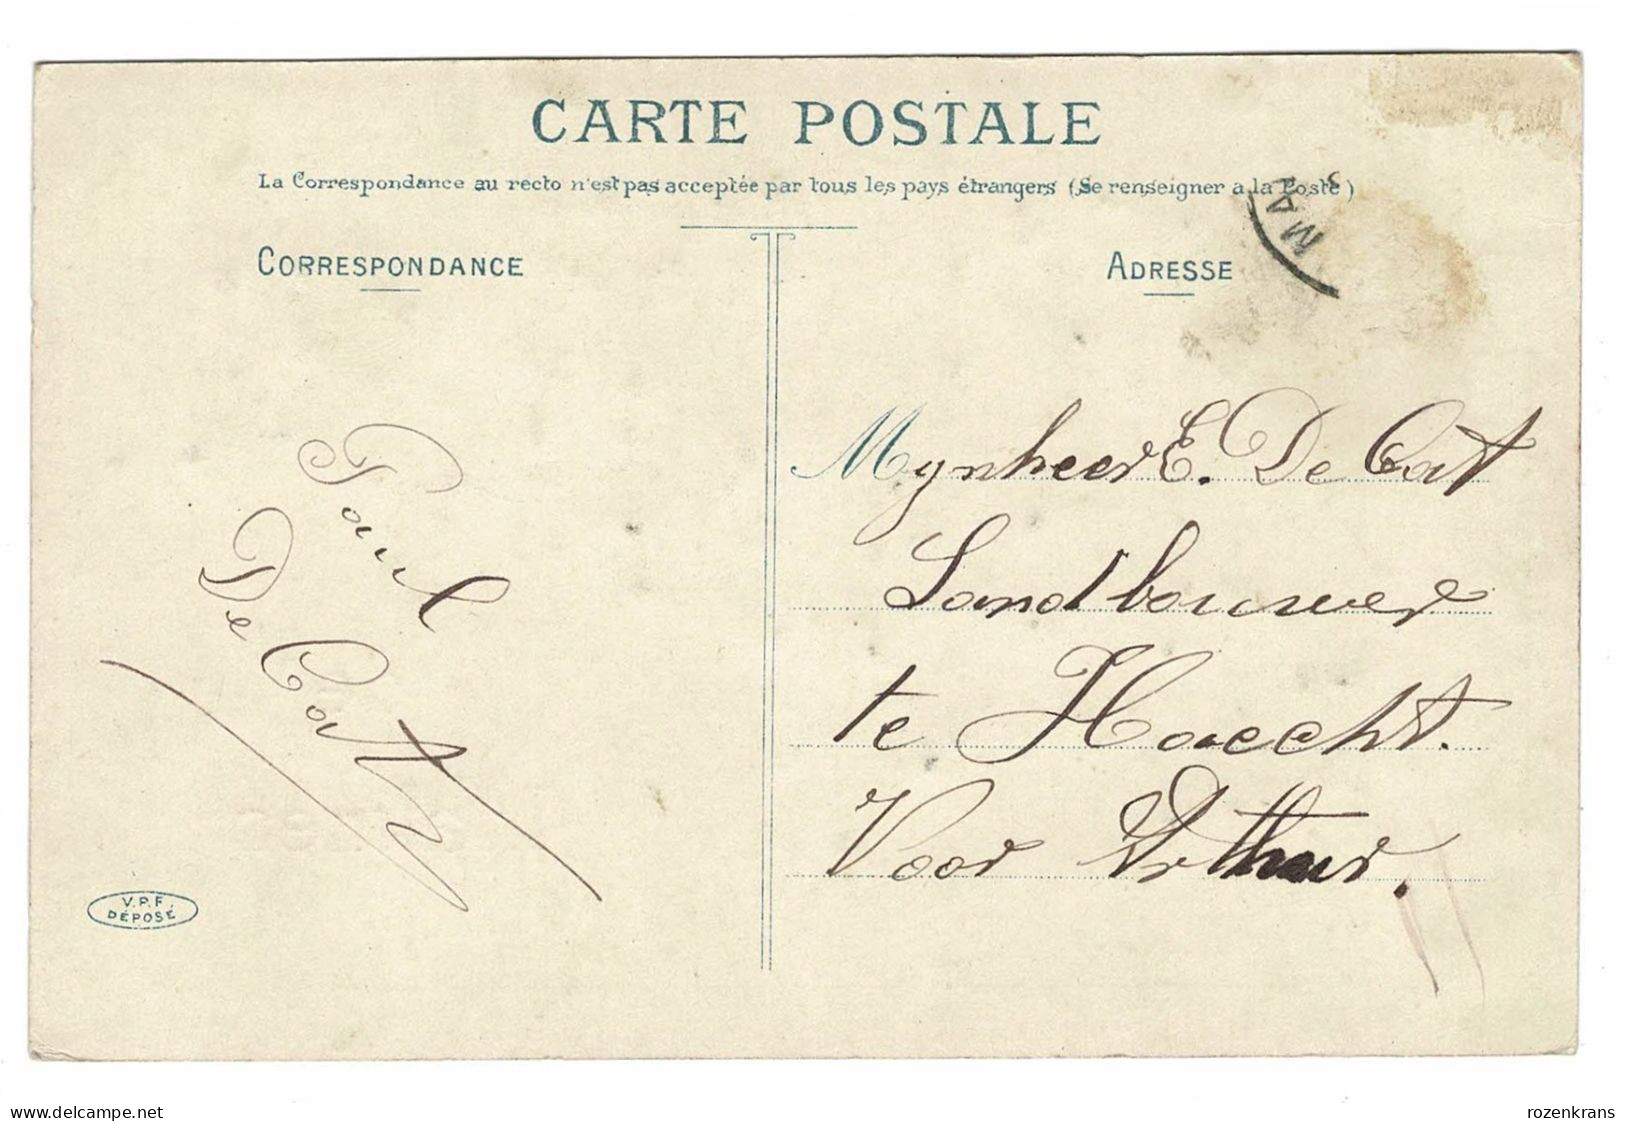 CARTE POSTALE
La Correspondance au recto n'est pas acceptée par tous les pays étrangers (Se renseigner a la Poste)
CORRESPONDANCE
ADRESSE
Paul
De Cat
V.P.F.
DÉPOSÉ
Mynheer E. De Cat
Landbouwer
te Haecht.
Voor Arthur.
delcampe.net
rozenkrans